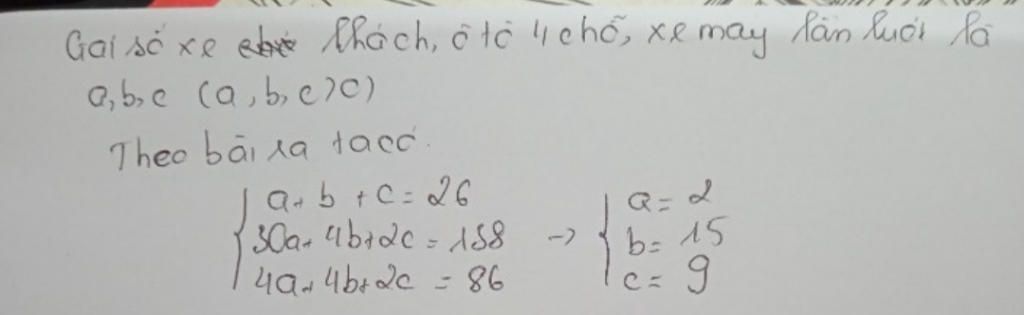 Gọi số xe khách, ô tô 4 chỗ, xe máy lần lượt là
a, b, c (a, b, c > 0)
Theo bài ra ta có.
a + b + c = 26
30a + 4b + 2c = 138 -> a = 2
4a + 4b + 2c = 86 b = 15
c = 9